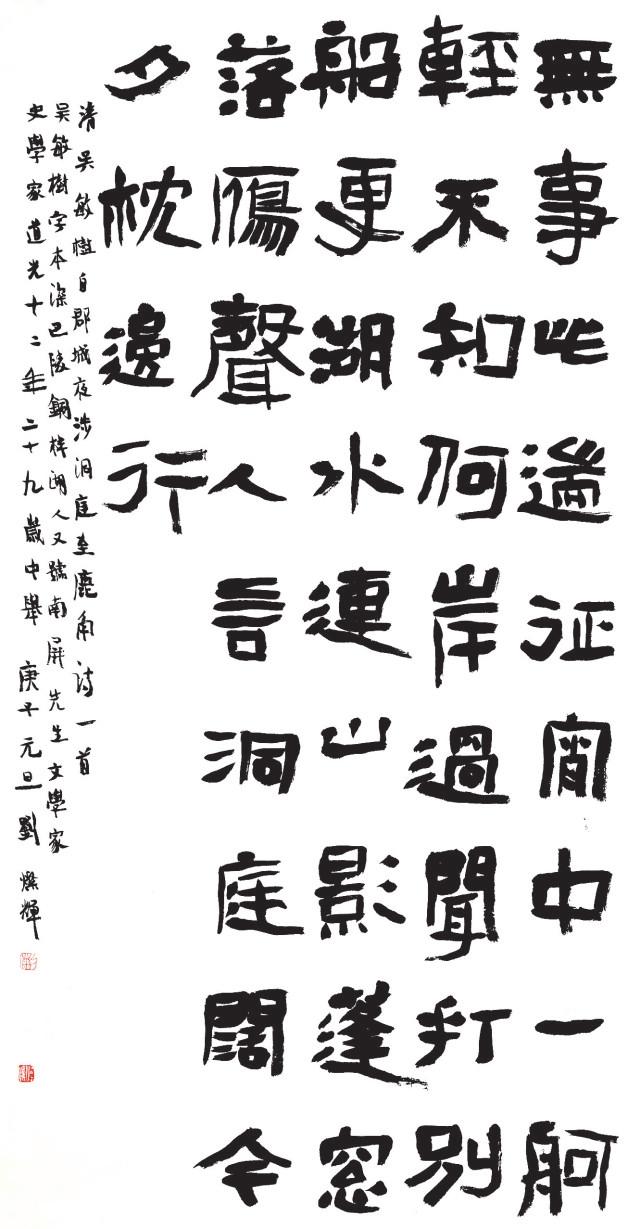 無事此遄征宵中一舸
輕不知何岸過聞打別
船更湖水連山影蓬窓
落鴈聲人言洞庭闊今
夕枕邊行
清吴敏樹自郡城夜涉洞庭至鹿角詩一首
吴敏樹字本深巴陵銅柈湖人又號南屏先生文學家
史學家道光十二年二十九歲中舉 庚子元旦 劉燦輝